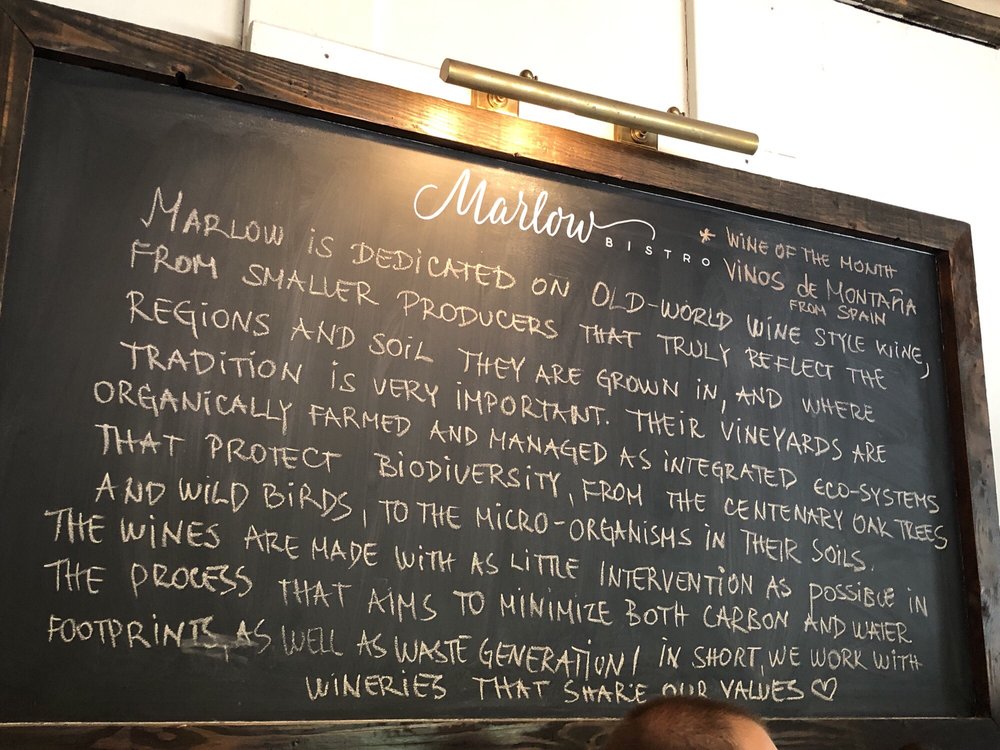 Marlow
BISTRO
* WINE OF THE MONTH
VINOS de MONTAÑA
FROM SPAIN
MARLOW iS DEDICATED ON OLD-WORLD WINE STYLE WINE,
FROM SMALLER PRODUCERS THAT TRULY REFLECT THE
REGIONS AND SOIL THEY ARE GROWN IN, AND WHERE
TRADITION IS VERY IMPORTANT. THEIR VINEYARDS ARE
ORGANICALLY FARMED AND MANAGED AS INTEGRATED ECO-SYSTEMS
THAT PROTECT BIODIVERSITY, FROM THE CENTENARY OAK TREES
AND WILD BIRDS, TO THE MICRO-ORGANISMS IN THEIR SOILS.
THE WINES ARE MADE WITH AS LITTLE INTERVENTION AS POSSIBLE IN
THE PROCESS THAT AIMS TO MINIMIZE BOTH CARBON AND WATER
FOOTPRINTS, AS WELL AS WASTE GENERATION! IN SHORT, WE WORK WITH
WINERIES THAT SHARE OUR VALUES ♡